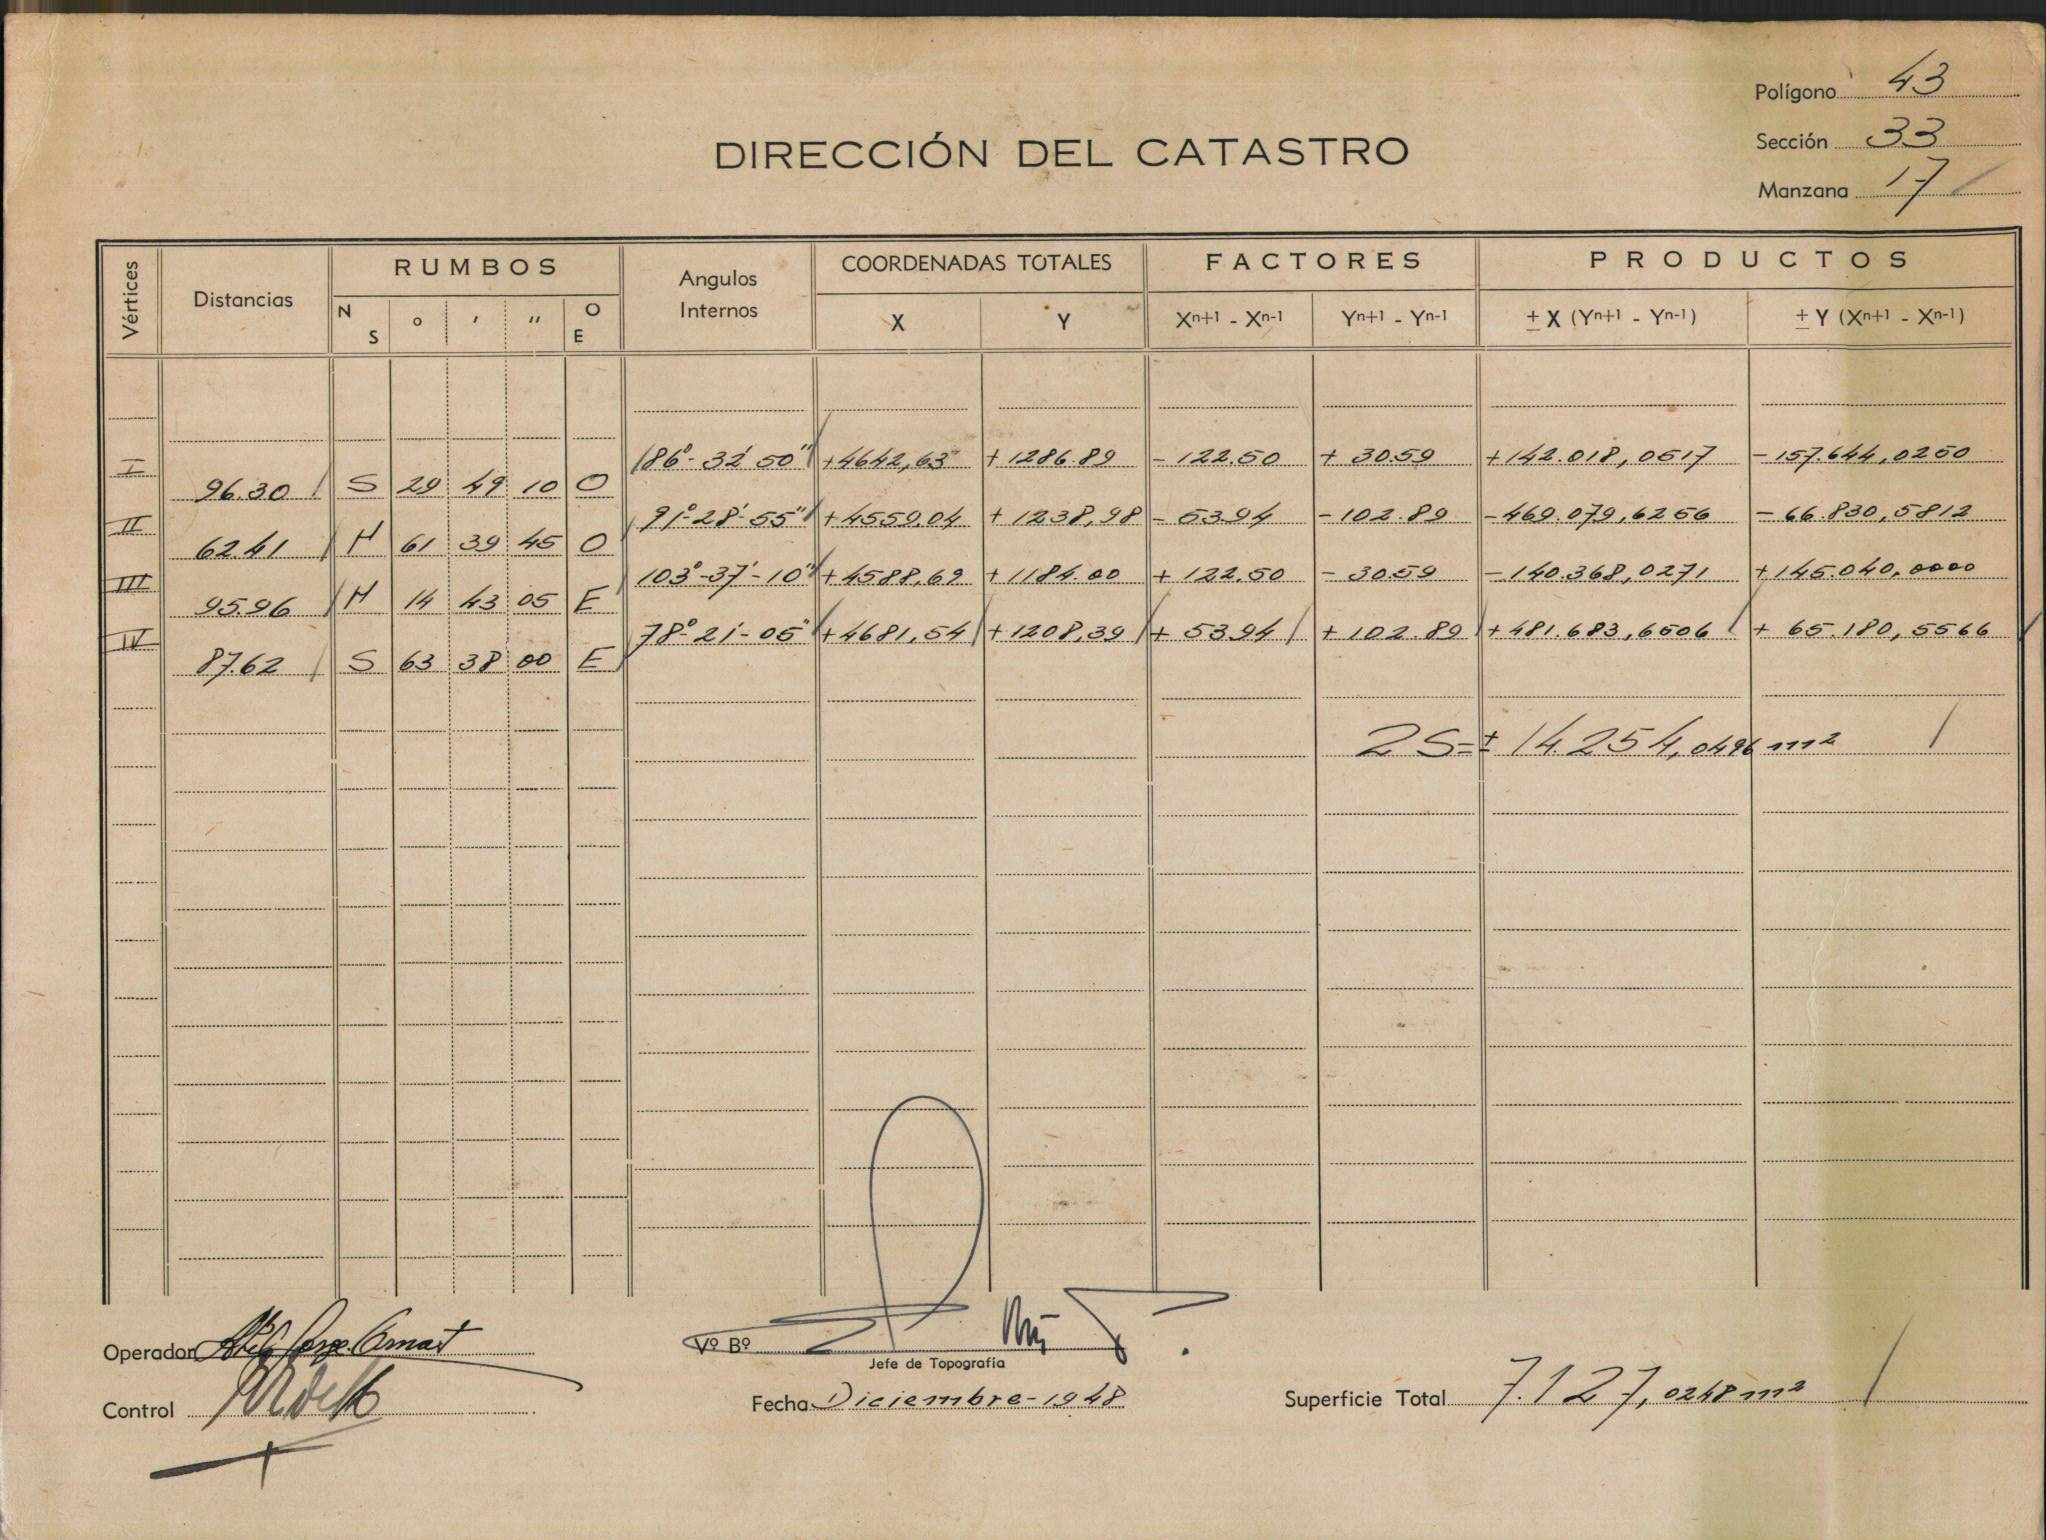 Polígono 43
Sección 33
Manzana 17
DIRECCIÓN DEL CATASTRO
Vértices Distancias RUMBOS Angulos Internos COORDENADAS TOTALES FACTORES PRODUCTOS
N S ° ' " O E X Y Xn+1 - Xn-1 Yn+1 - Yn-1 ± X (Yn+1 - Yn-1) ± Y (Xn+1 - Xn-1)
I 86°-32'50" +4642,63 +1286.89 -122.50 +30.59 +142.018,0517 -157.644,0250
96.30 S 29 49 10 O
II 91°-28'-55" +4559.04 +1238,98 -53.94 -102.89 -469.079,6256 -66.830,5812
62.41 N 61 39 45 O
III 103°-37'-10" +4588,69 +1184.00 +122.50 -30.59 -140.368,0271 +145.040,0000
95.96 N 14 43 05 E
IV 78°-21'-05" +4681,54 +1208,39 +53.94 +102.89 +481.683,6506 +65.180,5566
87.62 S 63 38 00 E
2S=± 14.254,0496 m²
Operador
Vº Bº
Jefe de Topografía
Control
Fecha Diciembre-1948
Superficie Total 7.127,0248 m²